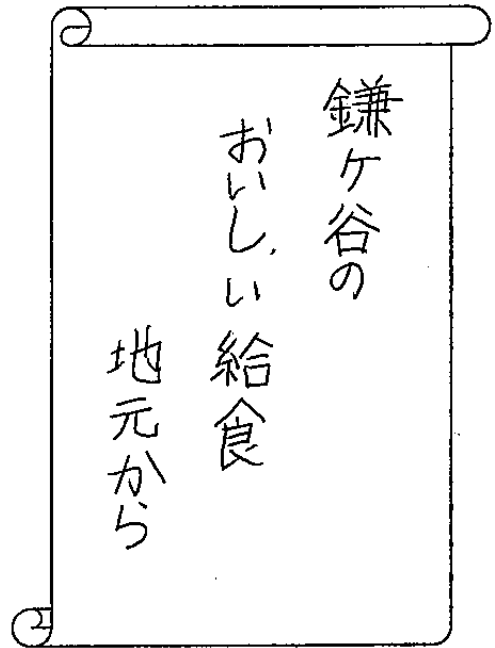 鎌ケ谷の
おいしい給食
地元から